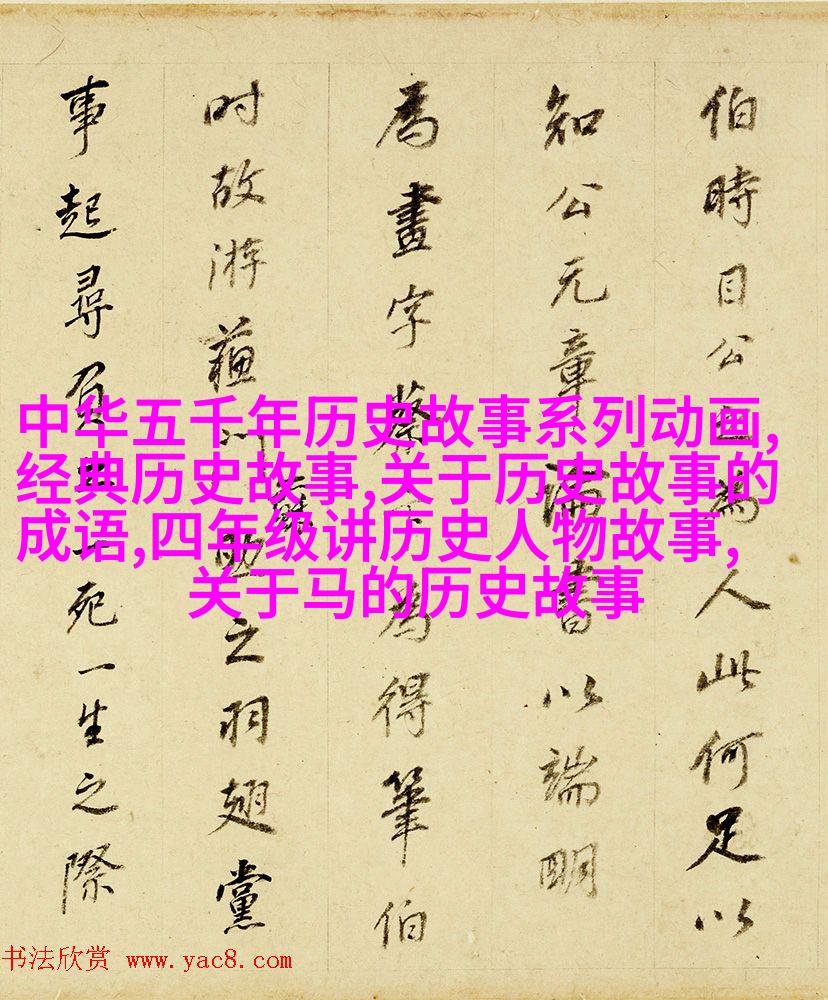 伯時目公為人此何足以
知公元章論書以端明
為畫字蔡為得筆伯
时故游蘓之羽翅黨
事起尋負死一生之際
中华五千年历史故事系列动画,
经典历史故事,关于历史故事的
成语,四年级讲历史人物故事,
关于马的历史故事
书法欣赏 www.yac8.com